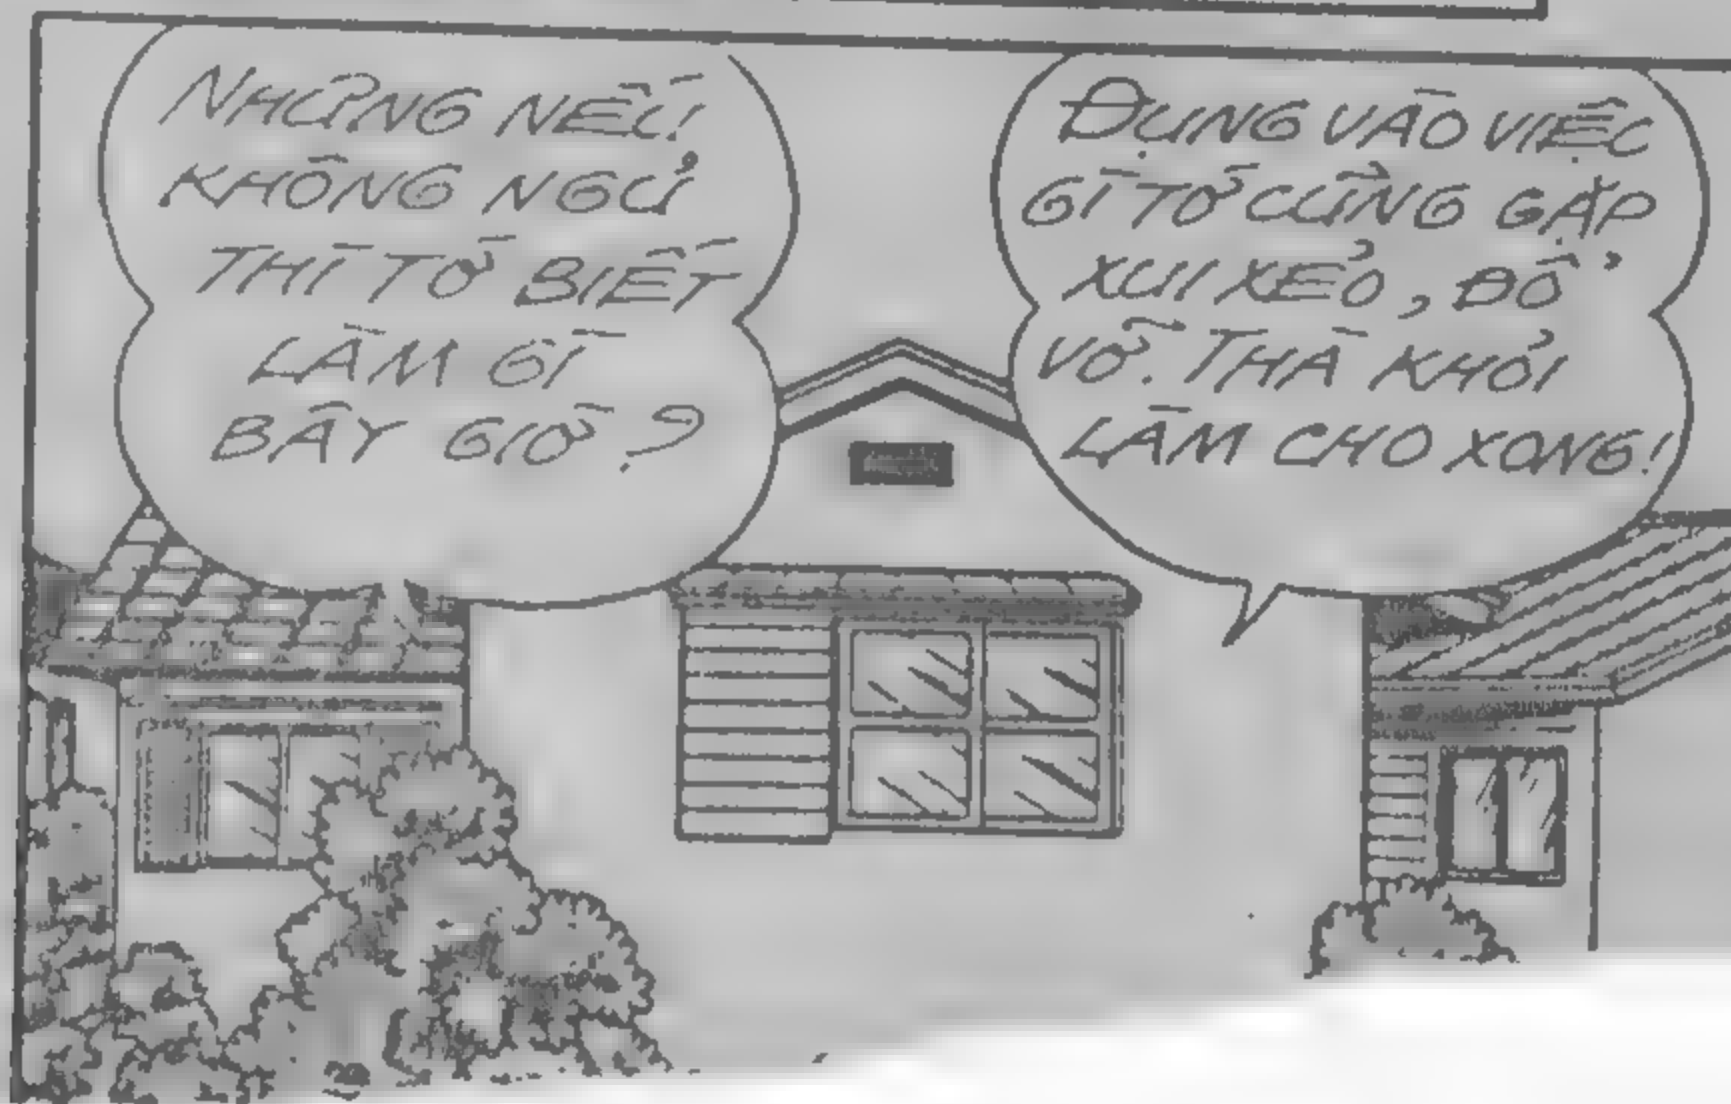 NHƯNG NẾU
KHÔNG NGỦ
THÌ TỚ BIẾT
LÀM GÌ
BÂY GIỜ?
ĐỤNG VÀO VIỆC
GÌ TỚ CŨNG GẶP
XUI XẺO, ĐỔ
VỠ. THÀ KHỎI
LÀM CHO XONG!